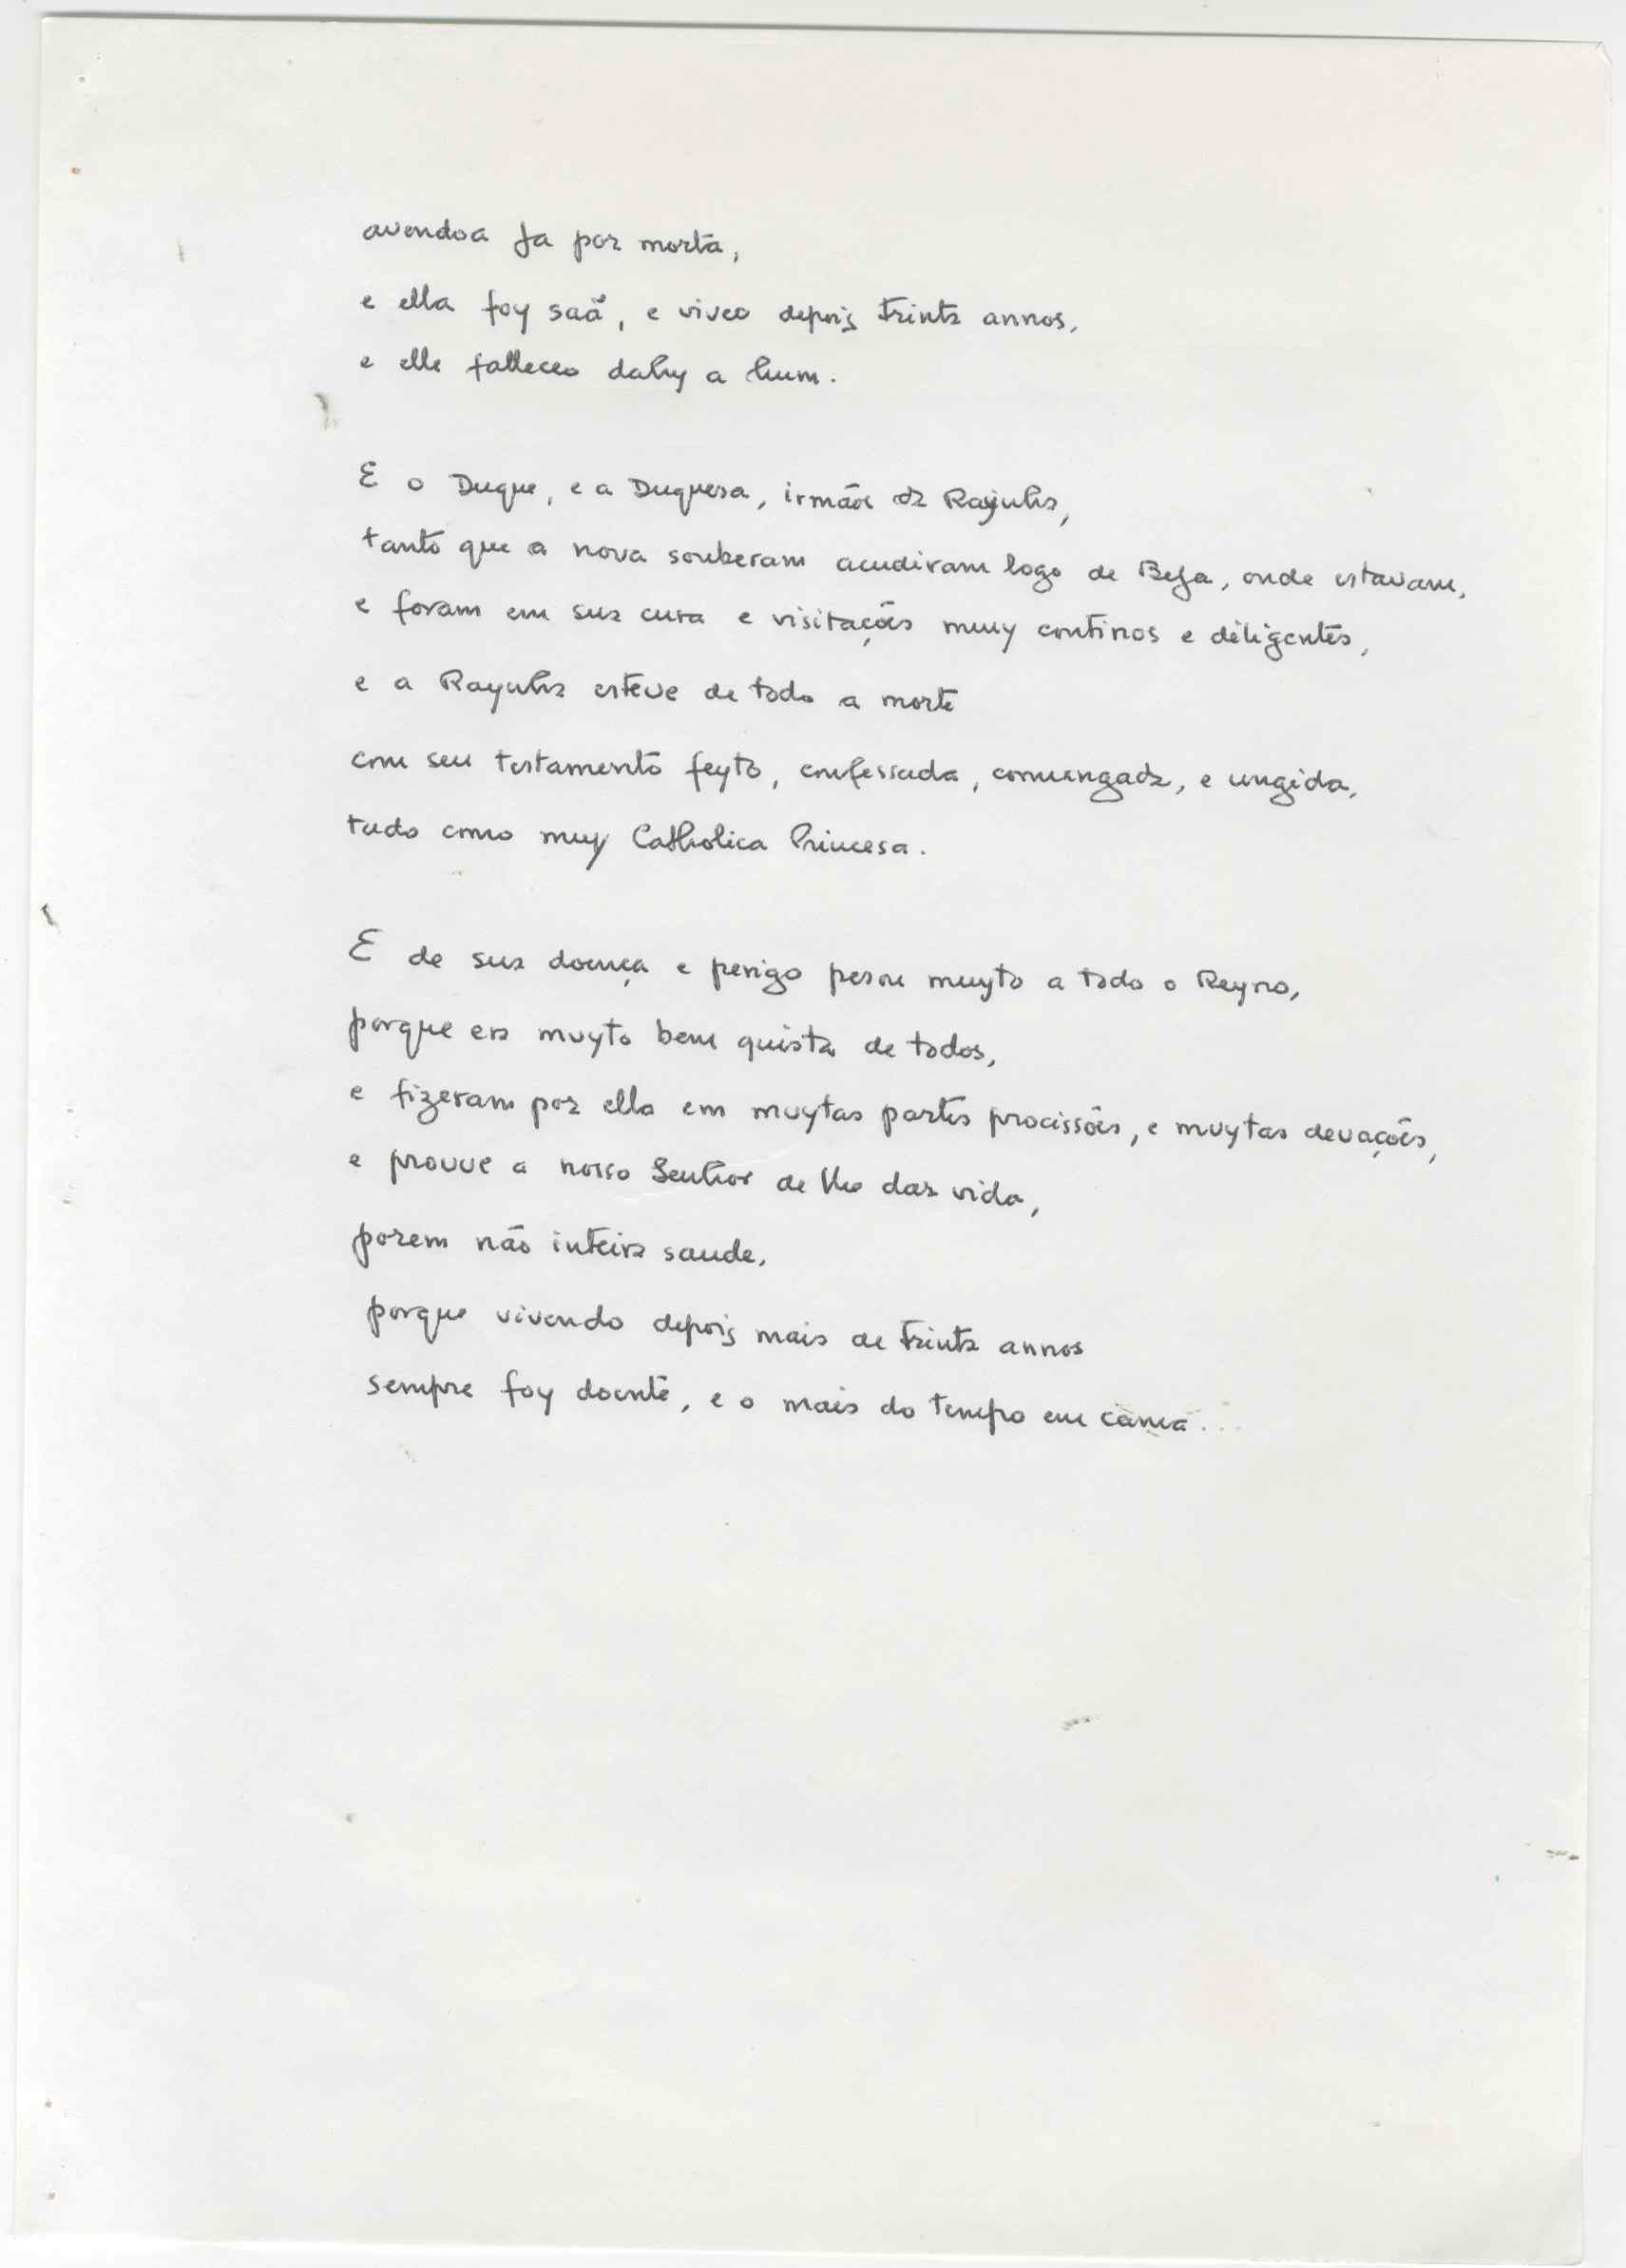 avendoa ja por morta,
e ella foy saã, e viveo depois trinta annos,
e elle falleceo dahy a hum.
E o Duque, e a Duquesa, irmãos da Raynha,
tanto que a nova souberam acudiram logo de Beja, onde estavam,
e foram em sua cura e visitações muy continos e diligentes,
e a Raynha esteve de todo a morte
com seu testamento feyto, confessada, comungada, e ungida,
tudo como muy Catholica Princesa.
E de sua doença e perigo pesou muyto a todo o Reyno,
porque era muyto bem quista de todos,
e fizeram por ella em muytas partes procissões, e muytas devações,
e prouve a nosso Senhor de lhe dar vida,
porem não inteira saude,
porque vivendo depois mais de trinta annos
sempre foy doente, e o mais do tempo em cama...